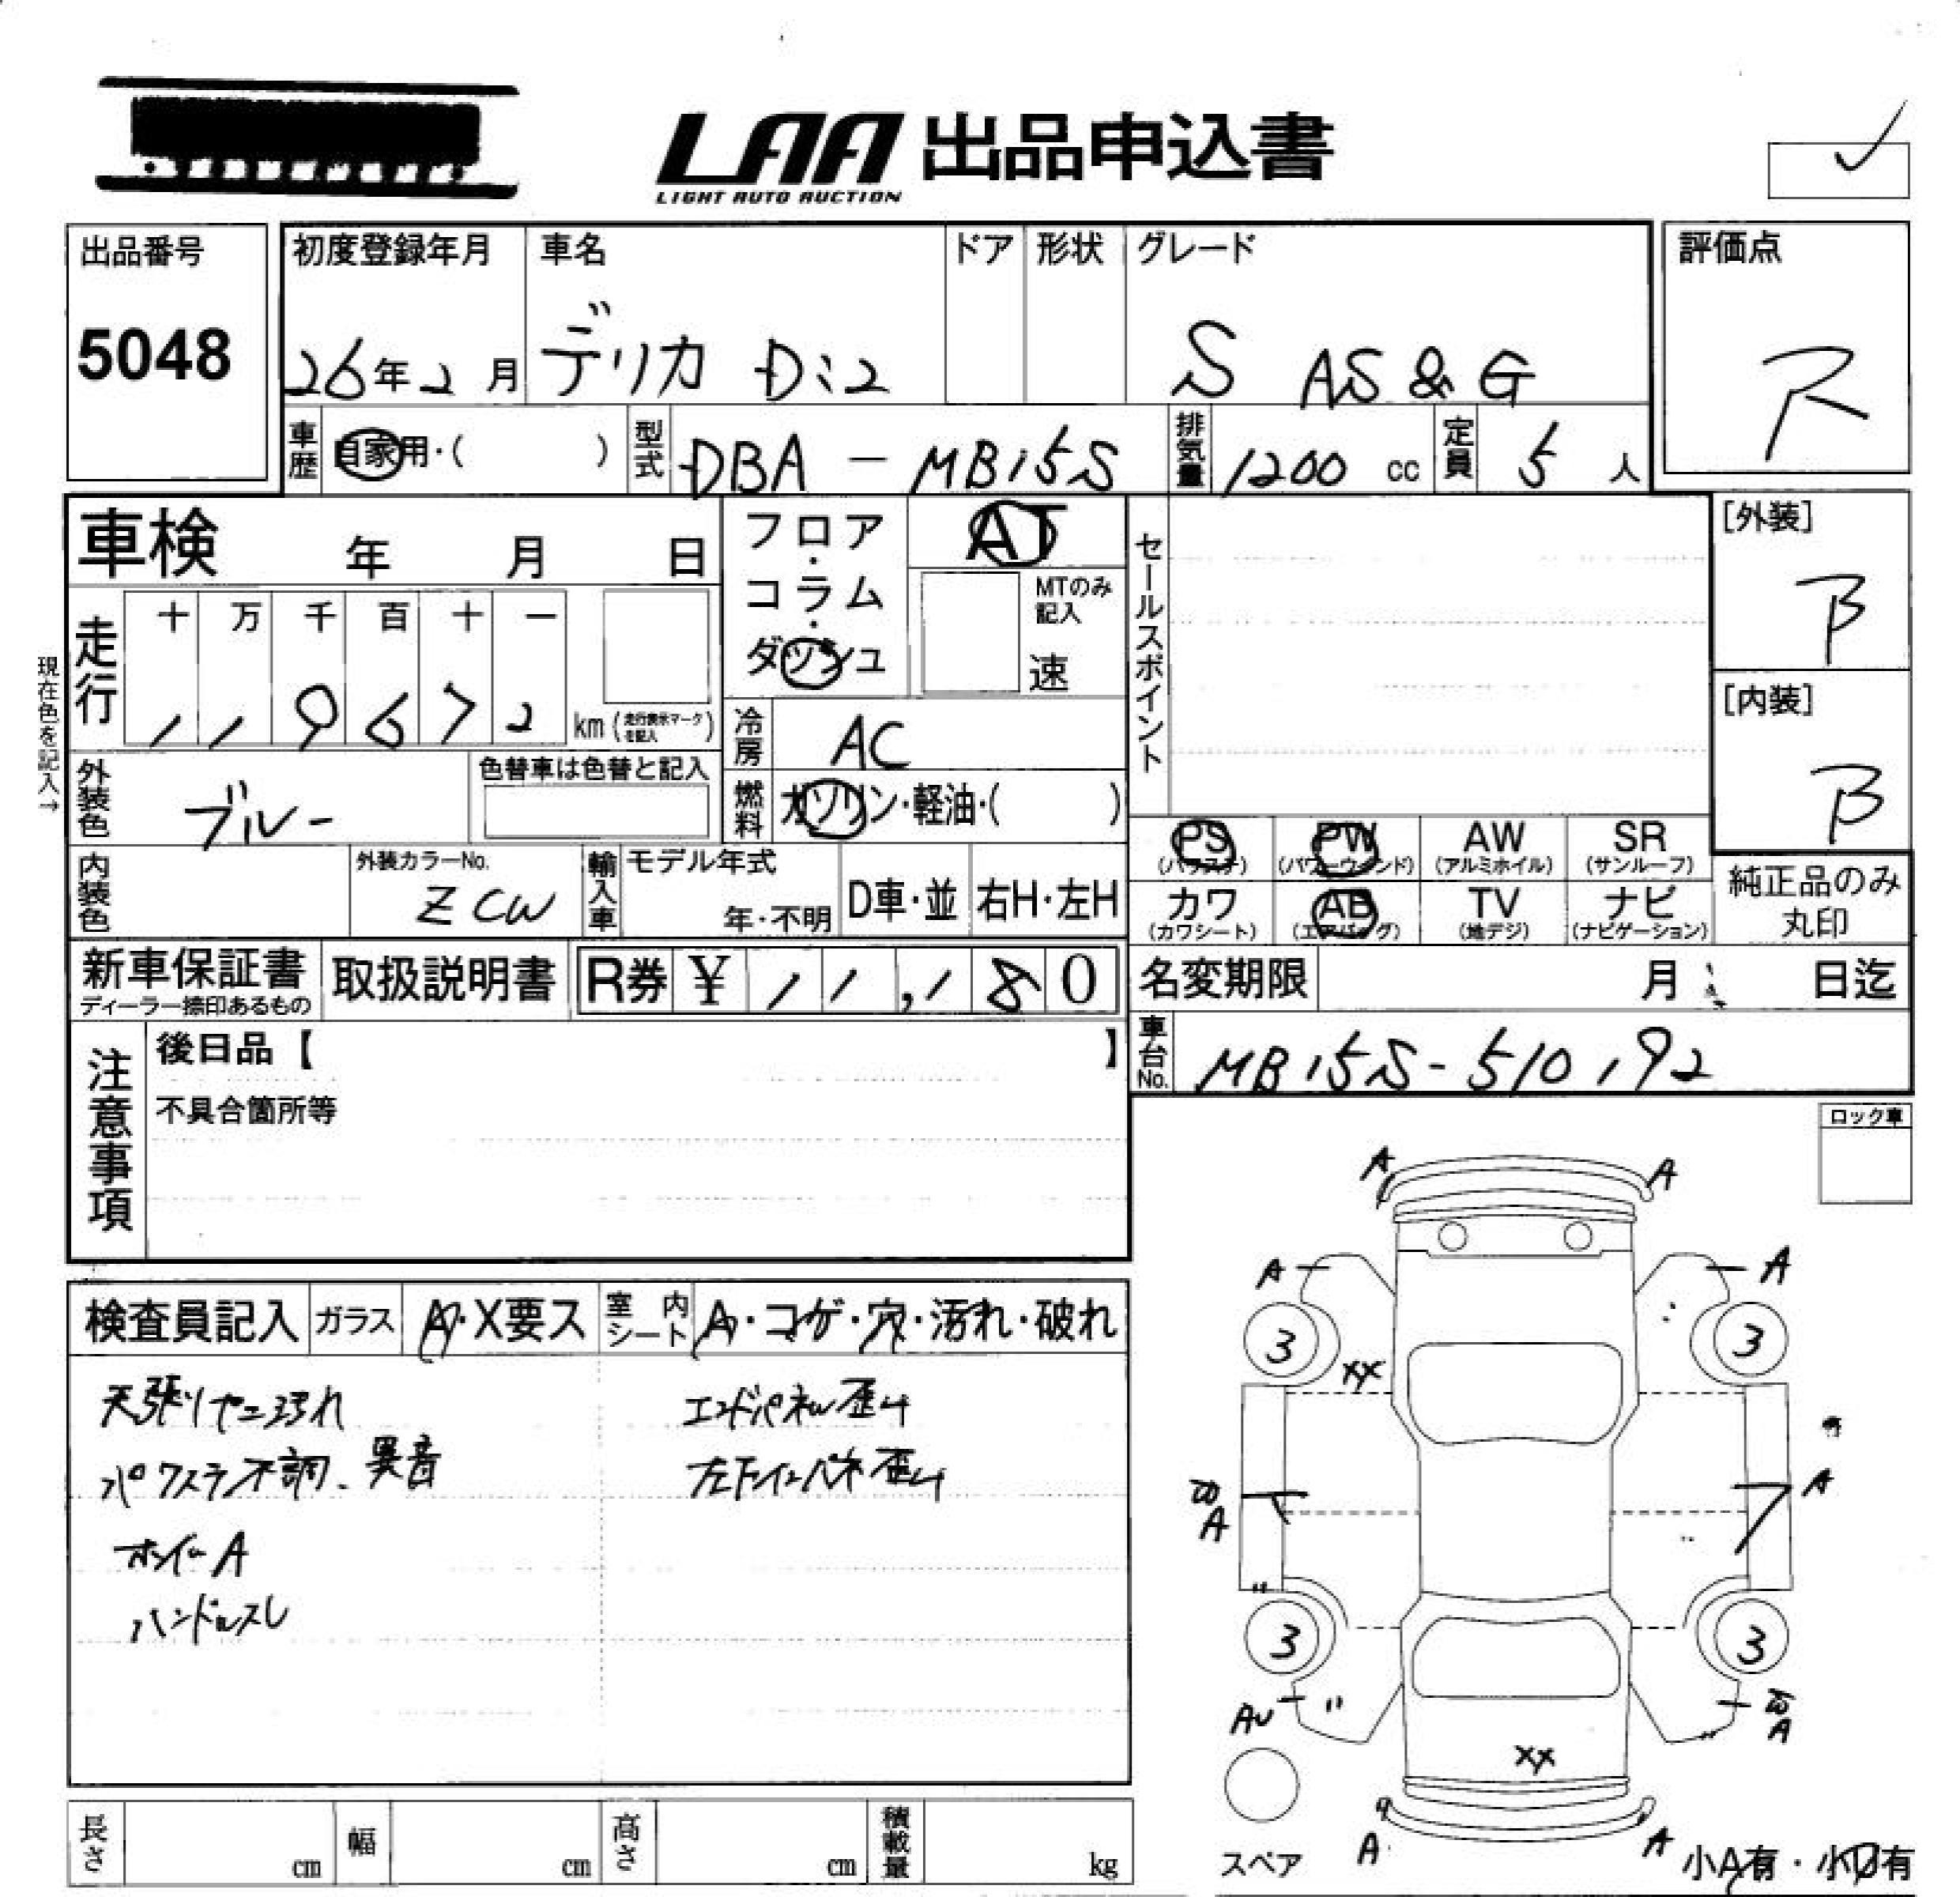 LAA 出品申込書
LIGHT AUTO AUCTION
出品番号
5048
初度登録年月
26年2月
車名
デリカ D:2
ドア
形状
グレード
S AS&G
評価点
R
車歴
自家用・( )
型式
DBA-MB15S
排気量
1200 cc
定員
5 人
車検 年 月 日
フロア・コラム・ダッシュ
AT
MTのみ記入
速
セールスポイント
[外装]
B
[内装]
B
現在色を記入→
走行
十 万 千 百 十 一
1 1 9 6 7 2 km (走行表示マークを記入)
冷房
AC
外装色
ブルー
色替車は色替と記入
燃料
ガソリン・軽油・( )
PS (パワステ)
PW (パワーウィンド)
AW (アルミホイル)
SR (サンルーフ)
カワ (カワシート)
AB (エアバッグ)
TV (地デジ)
ナビ (ナビゲーション)
純正品のみ丸印
内装色
外装カラーNo.
ZCW
輸入車
モデル年式
年・不明
D車・並
右H・左H
新車保証書
ディーラー捺印あるもの
取扱説明書
R券 ¥ 11,180
名変期限 月 日迄
車台No.
MB15S-510192
注意事項
後日品【 】
不具合箇所等
ロック車
検査員記入
ガラス
A・X要ス
室内シート
A・コゲ・穴・汚れ・破れ
天張りヤニ汚れ
パワステ不調、異音
ホイールA
ハンドルスレ
エンドパネル歪ミ
左下インパネ歪ミ
A A
A A
3 3
XX
A
A
3 3
AU
A
XX
A A
スペア
小A有・小U有
長さ cm
幅 cm
高さ cm
積載量 kg